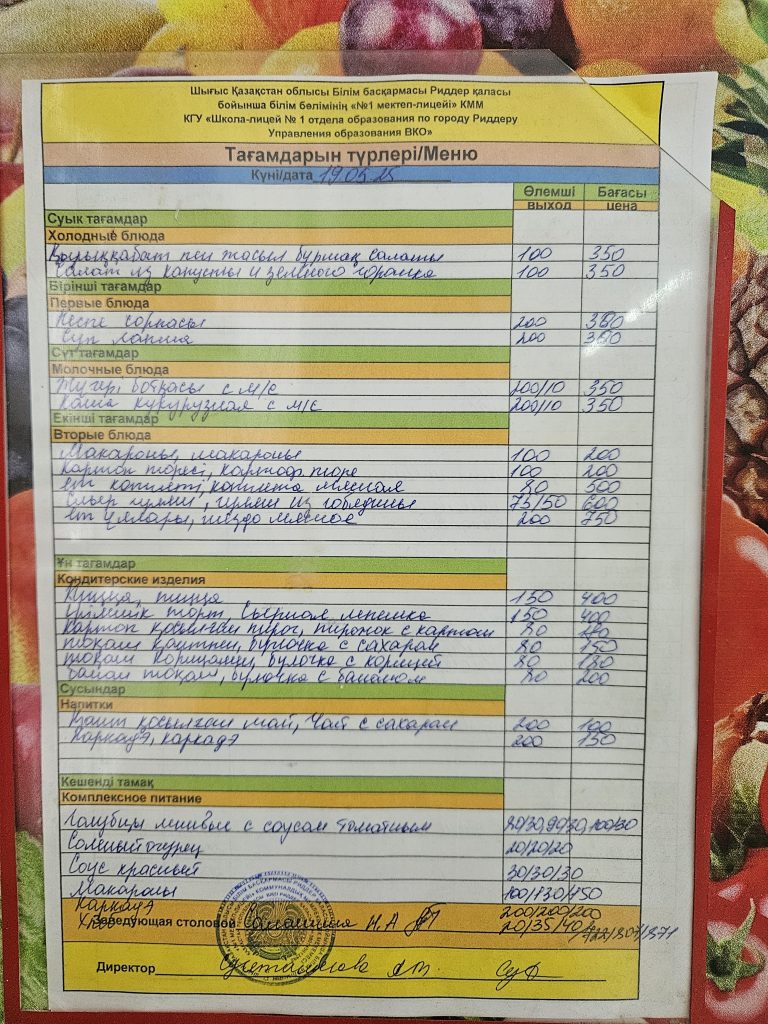 Шығыс Қазақстан облысы Білім басқармасы Риддер қаласы
бойынша білім бөлімінің «№1 мектеп-лицейі» КММ
КГУ «Школа-лицей № 1 отдела образования по городу Риддеру
Управления образования ВКО»
Тағамдарын түрлері/Меню
Күні/дата 19.05.25
Өлемші Бағасы
выход цена
Суық тағамдар
Холодные блюда
Қырыққабат пен жасыл бұршақ салаты 100 350
Салат из капусты и зелёного горошка 100 350
Бірінші тағамдар
Первые блюда
Кеспе сорпасы 200
Суп лапша 200
Сүт тағамдар
Молочные блюда
Жүгері ботқасы с м/с 200/10 350
Каша кукурузная с м/с 200/10 350
Екінші тағамдар
Вторые блюда
Макароны, макароны 100 200
Картоп пюресі, картоф пюре 100 200
Ет котлеті, котлета мясная 80 500
гуляш из говядины 75/50 600
Ет ұялары, гнездо мясное 200 750
Ұн тағамдар
Кондитерские изделия
Пицца, пицца 150 400
Ірімшік торт, сырная лепешка 150 400
Картоп қосылған пирог, пирожок с картош 80
Тоқаш қантпен, булочка с сахаром 80 150
Тоқаш корицамен, булочка с корицей 80 180
Банан тоқаш, булочка с бананом 80 200
Сусындар
Напитки
Қант қосылған шай, Чай с сахаром 200 100
Каркадэ, каркадэ 200 150
Кешенді тамақ
Комплексное питание
Голубцы ленивые с соусом томатным 80/30,90/30,100/30
Соленый огурец 20/20/20
Соус красный 30/30/30
Макароны 100/130/150
Каркадэ 200/200/200
Хлеб 20/35/40
Заведующая столовой Н.А
Директор